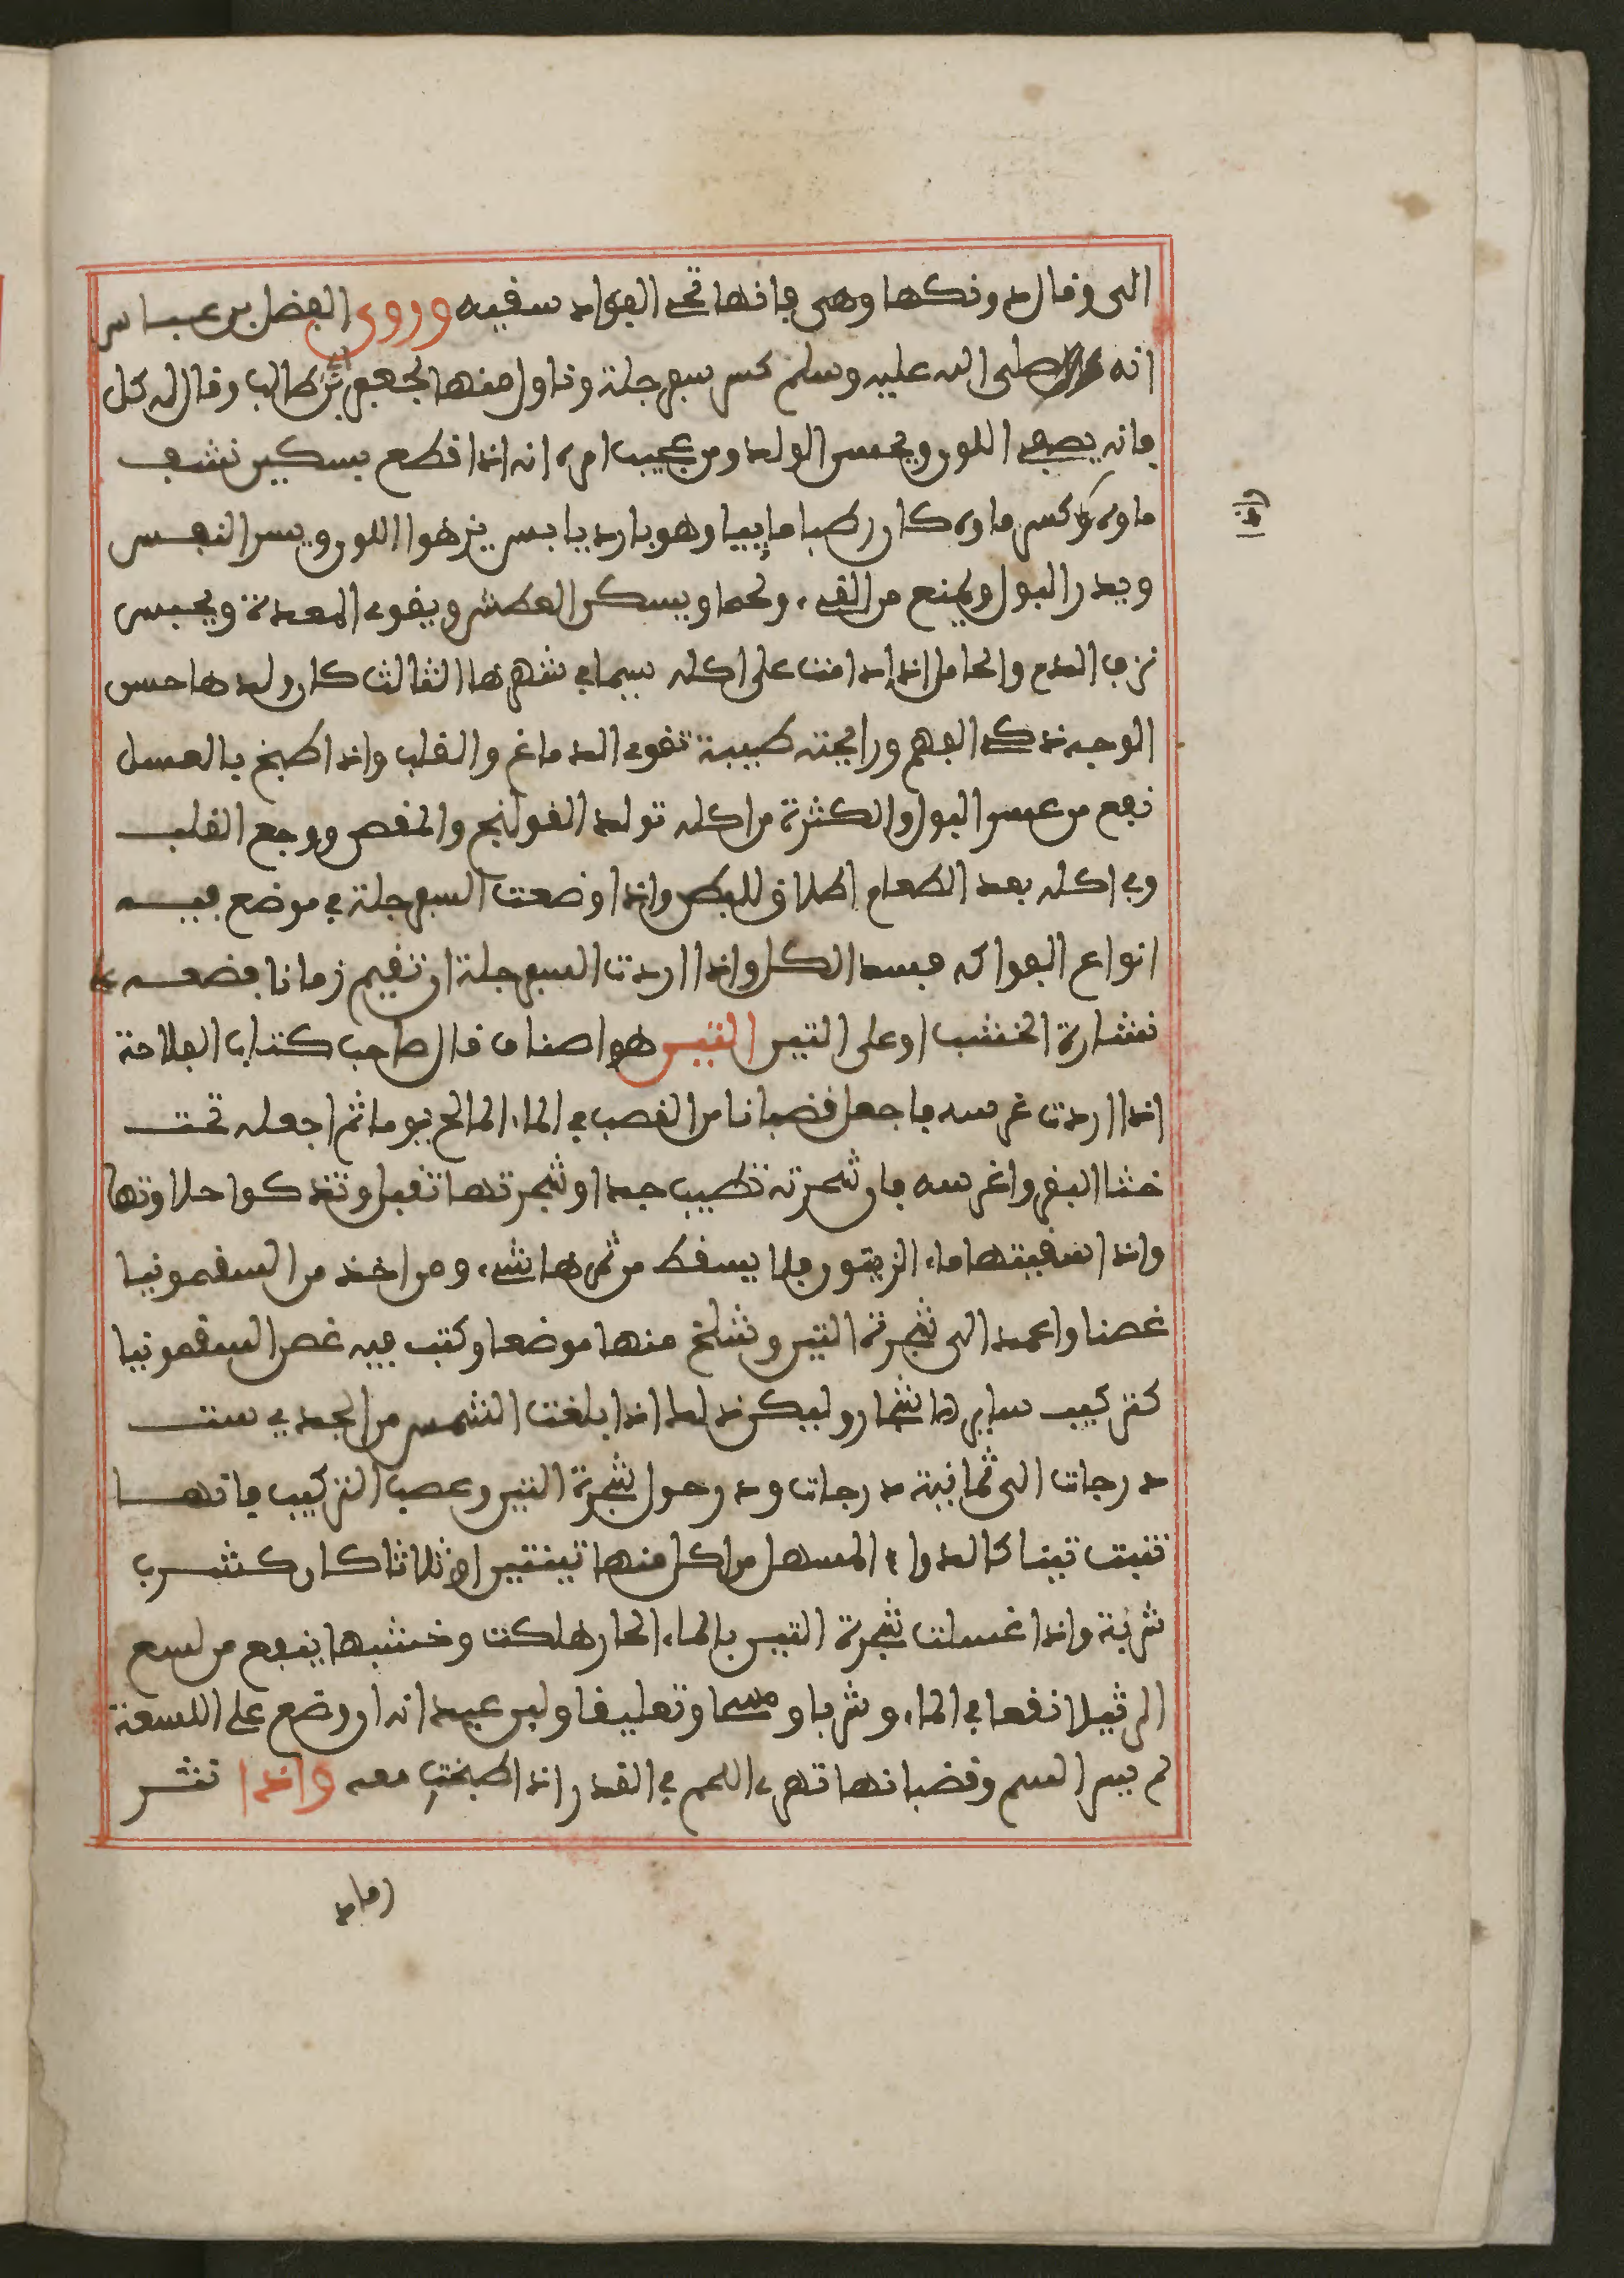 الى وقال دونكها وهى فانها تجم الفواد سفيه وروى الفضل بن عباس
انه صلى الله عليه وسلم كسر سفرجلة وناول منها لجعفر بن ابي طالب وقال له كل
فانه يصفى اللون ويحسن الولد ومن عجيب امره انه اذا قطع بسكين نشف
ماوه وكسر ماوه كان رطبا ماييا وهو بارد يابس يزهوا اللون ويسر النفس
ويدر البول ويمنع من القىء ولحما ويسكن العطش ويقوى المعدة ويحبس
نزف الدم والحامل اذا دامت على اكله سيما في شهرها الثالث كان ولدها حسن
الوجه ذكى الفهم ورايحته طيبة تقوى الدماغ والقلب واذا طبخ بالعسل
نفع من عسر البول والكثرة من اكله تولد القولنج والمغص ووجع القلب
وفي اكله بعد الطعام اطلاق للبطن واذا وضعت السفرجلة في موضع فيه
انواع الفواكه فسد الكل واذا اردت السفرجلة ان تقيم زمانا فضعه على
نشارة الخشب او على التين التين هو اصناف قال صاحب كتاب الفلاحة
اذا اردت غرسه فاجعل قضبانا من القصب في الماء المالح يوما ثم اجعله تحت
خثا البقر واغرسه فان شجرته تطيب جدا وشجرتها تقبل وتذكوا حلاوتها
واذا سقيتها ماء الزيتون فلا يسقط من ثمرها شىء ومن اخذ من السقمونيا
غصنا واعمد الى شجرة التين وشلخ منها موضعا وكتب فيه غصن السقمونيا
كتركيب ساير الاشجار وليكن ذلك اذا بلغت الشمس من الجدي ست
درجات الى ثمانية درجات ودر حول شجرة التين وعصب التركيب فانها
تنبت تينا كالدواء المسهل من اكل منها تينتين او ثلاثا كان كشرب
شربة واذا غسلت شجرة التين بالماء الحار هلكت وخشبها ينفع من لسع
الرتيلا نفعا في الماء وشربا ومسحا وتعليقا ولبن عيدانه ان وضع على اللسعة
لم يسر السم وقضبانها تهرى اللحم في القدر اذا طبخت معه واذا نشر
رماد